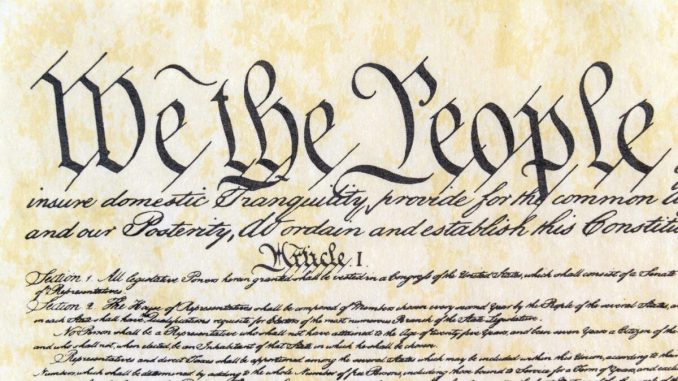 We the People
insure domestic Tranquility, provide for the common
and our Posterity, do ordain and establish this Constitu
Article I.
Section 1. All legislative Powers herein granted shall be vested in a Congress of the United States, which shall consist of a Senate
of Representatives.
Section 2. The House of Representatives shall be composed of Members chosen every second Year by the People of the several States,
in each State shall have Qualifications requisite for Electors of the most numerous Branch of the State Legislature.
No Person shall be a Representative who shall not have attained to the Age of twenty five Years, and been seven Years a Citizen of the
and who shall not, when elected, be an Inhabitant of that State in which he shall be chosen.
Representatives and direct Taxes shall be apportioned among the several States which may be included within this Union, according to
Numbers, which shall be determined by adding to the whole Number of free Persons, including those bound to Service for a Term of Years, and